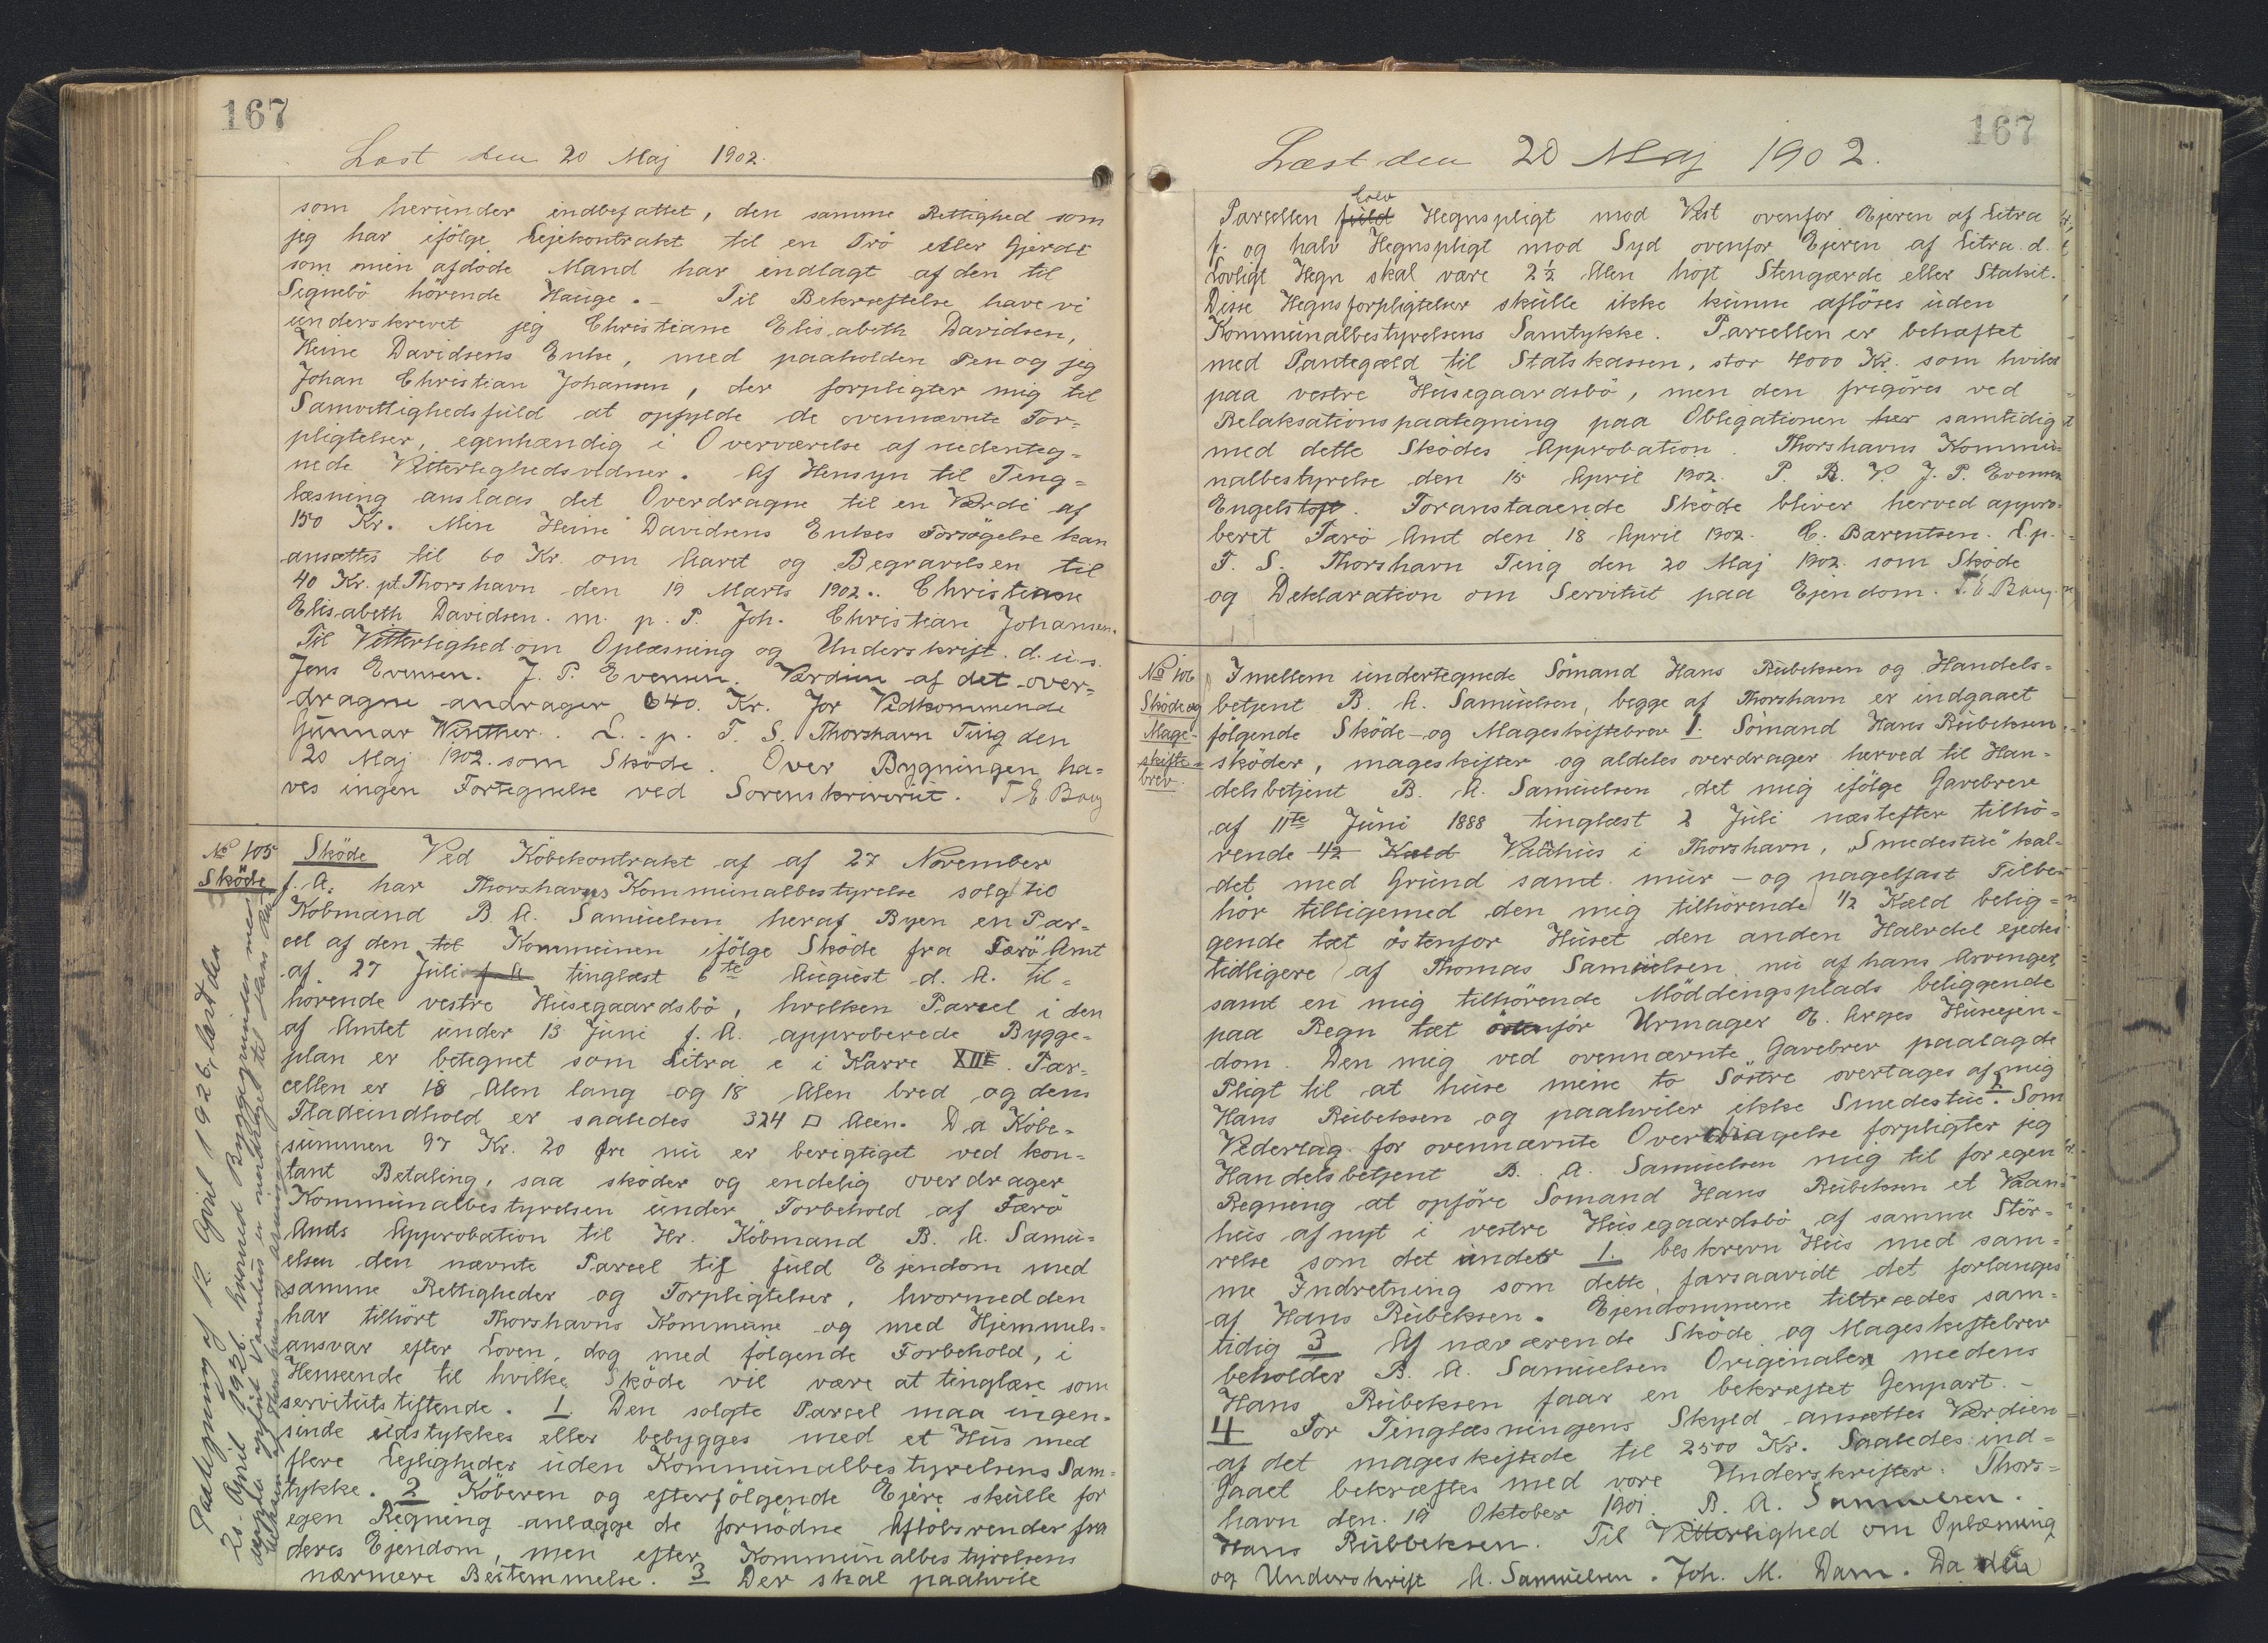 167
Læst den 20 Maj 1902.
som herunder indbefattet, den samme Rettighed som
jeg har ifölge Lejekontrakt til en Trö eller Gjerde
som min afdöde Mand har indlagt af den til
Segnebö hörende Hauge. – Til Bekræftelse have vi
underskrevet jeg Christiane Elisabeth Davidsen,
Heine Davidsens Enke, med paaholden Pen og jeg
Johan Christian Johansen, der forpligter mig til
Samvittighedsfuld at opfylde de ovennævnte For=
pligtelser, egenhændig i Overværelse af nedenteg=
nede Vitterlighedsvidner. Af Hensyn til Ting=
læsning anslaas det Overdragne til en Værdi af
150 Kr. Min Heine Davidsens Enkes Forsögelse kan
ansættes til 60 Kr. om Aaret og Begravelsen til
40 Kr. pt Thorshavn den 19 Marts 1902.. Christiane
Elisabeth Davidsen. m. p. P. Joh. Christian Johansen.
Til Vitterlighed om Oplæsning og Underskrift. d. u. s.
Jens Evensen. J. P. Evensen. Værdien af det over=
dragne andrager 640. Kr. For Vedkommende
Gunnar Winther. L. p. T. S. Thorshavn Ting den
20 Maj 1902. som Sköde. Over Bygningen ha=
ves ingen Fortegnelse ved Sorenskriveriet. T E Bay
No 105
Sköde
Sköde Ved Köbekontrakt af af 27 November
f. A. har Thorshavns Kommunalbestyrelse solgt til
Köbmand B. A. Samuelsen heraf Byen en Par=
cel af den til Kommunen ifölge Sköde fra Færö Amt
af 27 Juli f A tinglæst 6te August d. A. til=
hörende vestre Husegaardsbö, hvilken Parcel i den
af Amtet under 13 Juni f. A. approberede Bygge=
plan er betegnet som Litra e i Karre XIII. Par=
cellen er 18 Alen lang og 18 Alen bred og dens
Fladeindhold er saaledes 324 □ Alen. Da Köbe=
summen 97 Kr. 20 Øre nu er berigtiget ved kon=
tant Betaling, saa sköder og endelig overdrager
Kommunalbestyrelsen under Forbehold af Færö
Amts Approbation til Hr. Köbmand B. A. Samu=
elsen den nævnte Parcel til fuld Ejendom med
samme Rettigheder og Forpligtelser, hvormed den
har tilhört Thorshavns Kommune og med Hjemmels=
ansvar efter Loven, dog med fölgende Forbehold, i
Henseende til hvilke Sköde vil være at tinglæse som
servitutstiftende. 1. Den solgte Parcel maa ingen=
sinde udstykkes eller bebygges med et Hus med
flere Lejligheder uden Kommunalbestyrelsens Sam=
tykke. 2 Köberen og efterfölgende Ejere skulle for
egen Regning anlægge de fornödne Aflöbsrender fra
deres Ejendom, men efter Kommunalbestyrelsens
nærmere Bestemmelse. 3 Der skal paahvile
Paategning af 12 April 1926, læst den
25. April 1926. hvorved Byggegrunden med
derpaa opført Vaanhus er
167
Læst den 20 Maj 1902.
halv
Parcellen fuld Hegnspligt mod Vest ovenfor Ejeren af Litra
f. og halv Hegnspligt mod Syd ovenfor Ejeren af Litra. d.
Lovligt Hegn skal være 2½ Alen höjt Stengærde eller Stakit.
Disse Hegnsforpligtelser skulle ikke kunne aflöses uden
Kommunalbestyrelsens Samtykke. Parcellen er behæftet
med Pantegæld til Statskassen, stor 4000 Kr. som hviler
paa vestre Husegaardsbö, men den frigöres ved
Relaksationspaategning paa Oblegationen her samtidig
med dette Skødes Approbation. Thorshavns Kommu=
nalbestyrelse den 15 April 1902. P. B. V. J. P. Evensen
Engelstoft. Foranstaaende Sköde bliver herved appro=
beret Færö Amt den 18 April 1902. C. Bærentsen. L.p.
T. S. Thorshavn Ting den 20 Maj 1902. som Sköde
og Deklaration om Servitut paa Ejendom. T. E Bay.
No 106
Sköde og
Mage-
skifte=
brev.
Imellem undertegnede Sömand Hans Rubeksen og Handels=
betjent B. A. Samuelsen, begge af Thorshavn er indgaaet
fölgende Sköde- og Mageskiftebrev 1. Sömand Hans Rubeksen
sköder, mageskifter og aldeles overdrager herved til Han=
delsbetjent B. A. Samuelsen det mig ifölge Gavebrev
af 11te Juni 1888 tinglæst 2 Juli næstefter tilhö=
rende 1/2 Kæld Vaahus i Thorshavn, "Smedestue" kal=
det med Grund samt mur – og nagelfast Tilbe=
hör tilligemed den mig tilhörende 1/2 Kæld belig=
gende tæt östenfor Huset den anden Halvdel ejedes
tidligere af Thomas Samuelsen nu af hans Arvinger,
samt en mig tilhörende Möddingsplads beliggende
paa Regn tæt östenfor Urmager E. Arges Husejen=
dom. Den mig ved ovennævnte Gavebrev paalagde
Pligt til at huse mine to Söstre overtages af mig
Hans Rubeksen og paahviler ikke Smedestue. 2 Som
Vederlag for ovennævnte Overdragelse forpligter jeg
Handelsbetjent B. A. Samuelsen mig til for egen
Regning at opföre Sömand Hans Rubeksen et Vaan=
hus af nyt i vestre Husegaardsbö af samme Stör=
relse som det under 1. beskrevn Hus med sam=
me Indretning som dette, forsaavidt det forlanges
af Hans Rubeksen. Ejendommene tiltrædes sam=
tidig 3 Af nærværende Sköde og Mageskiftebrev
beholder B. A. Samuelsen Originalen medens
Hans Rubeksen faar en bekræftet Genpart. –
4 For Tinglæsningens Skyld ansættes Værdien
af det mageskiftede til 2500 Kr. Saaledes ind=
gaaet bekræftes med vore Underskrifter. Thors=
havn den. 19 Oktober 1901. B. A. Samuelsen.
Hans Rubbeksen. Til Vitterlighed om Oplæsning
og Underskrift A. Samuelsen. Joh. M. Dam. Da